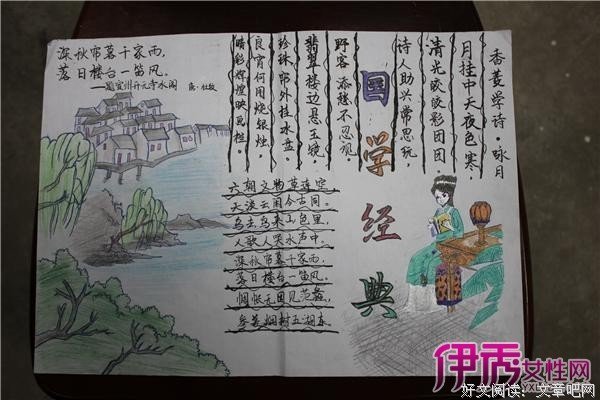 深秋帘幕千家雨，
落日楼台一笛风。
——题宣州开元寺水阁 唐·杜牧
香菱学诗·咏月
月挂中天夜色寒，
清光皎皎影团团
诗人助兴常思玩，
野客添愁不忍观。
翡翠楼边悬玉镜，
珍珠帘外挂冰盘。
良宵何用烧银烛，
晴彩辉煌映画栏。
国学经典
六朝文物草连空
天淡云闲今古同。
鸟去鸟来山色里，
人歌人哭水声中。
深秋帘幕千家雨，
落日楼台一笛风。
惆怅无因见范蠡，
参差烟树五湖东
伊秀女性网
好文阅读：文章吧网